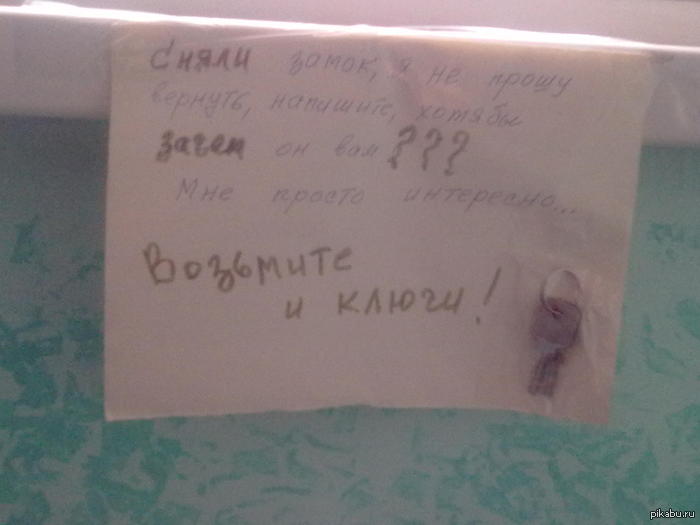 Сняли замок, я не прошу
вернуть, напишите, хотябы
зачем он вам ???
Мне просто интересно...
Возьмите
и ключи!
pikabu.ru